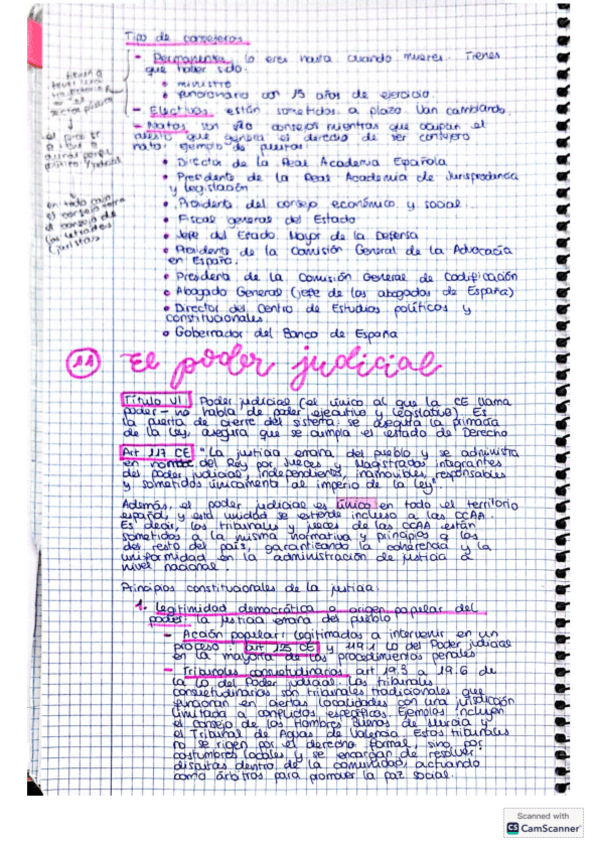 Tipo de consejeros
- Permanentes lo eres hasta cuando mueres. Tienes
que haber sido:
• ministro
• funcionario con 15 años de ejercicio
- Electivos están sometidos a plazo. Van cambiando.
- Natos son consejos mientras que ocupan el
puesto que genera el derecho de ser consejero
nato: ejemplo de puestos:
• Director de la Real Academia Española
• Presidente de la Real Academia de Jurisprudencia
y legislación
• Presidente del consejo económico y social.
• Fiscal general del Estado
• Jefe del Estado Mayor de la Defensa
• Presidente de la Comisión General de la Abogacía
en España.
• Presidente de la Comisión General de Codificación
• Abogado General (jefe de los abogados de España)
• Director del Centro de Estudios políticos y
constitucionales
• Gobernador del Banco de España
en todo caso
el consejo de
los letrados
(juristas)
11 El poder judicial
Título VI Poder judicial (el único al que la CE llama
poder - no habla de poder ejecutivo y legislativo). Es
la puerta de cierre del sistema: se asegura la primacía
de la Ley, asegura que se cumpla el estado de Derecho
Art 117 CE "La justicia emana del pueblo y se administra
en nombre del Rey por Jueces y Magistrados integrantes
del poder judicial, independientes, inamovibles, responsables
y sometidos únicamente al imperio de la ley".
Además, el poder judicial es único en todo el territorio
español, y esta unidad se extiende incluso a las CCAA.
Es decir, los tribunales y jueces de las CCAA están
sometidos a la misma normativa y principios a los
del resto del país, garantizando la coherencia y la
uniformidad en la administración de justicia a
nivel nacional.
Principios constitucionales de la justicia:
1. Legitimidad democrática o origen popular del
poder: la justicia emana del pueblo
- Acción popular: legitimados a intervenir en un
proceso: art 125 CE y 19.1 LO del Poder judicial
en la mayoría de los procedimientos penales
- Tribunales consuetudinarios art 19.3 a 19.6 de
la LO del Poder judicial. Los tribunales
consuetudinarios son tribunales tradicionales que
funcionan en ciertas localidades con una jurisdicción
limitada a conflictos específicos. Ejemplos incluyen
el Consejo de los Hombres Buenos de Murcia y
el Tribunal de Aguas de Valencia. Estos tribunales
no se rigen por el derecho formal, sino por
costumbres locales y se encargan de resolver
disputas dentro de la comunidad, actuando
como árbitros para promover la paz social.
Scanned with
CS CamScanner